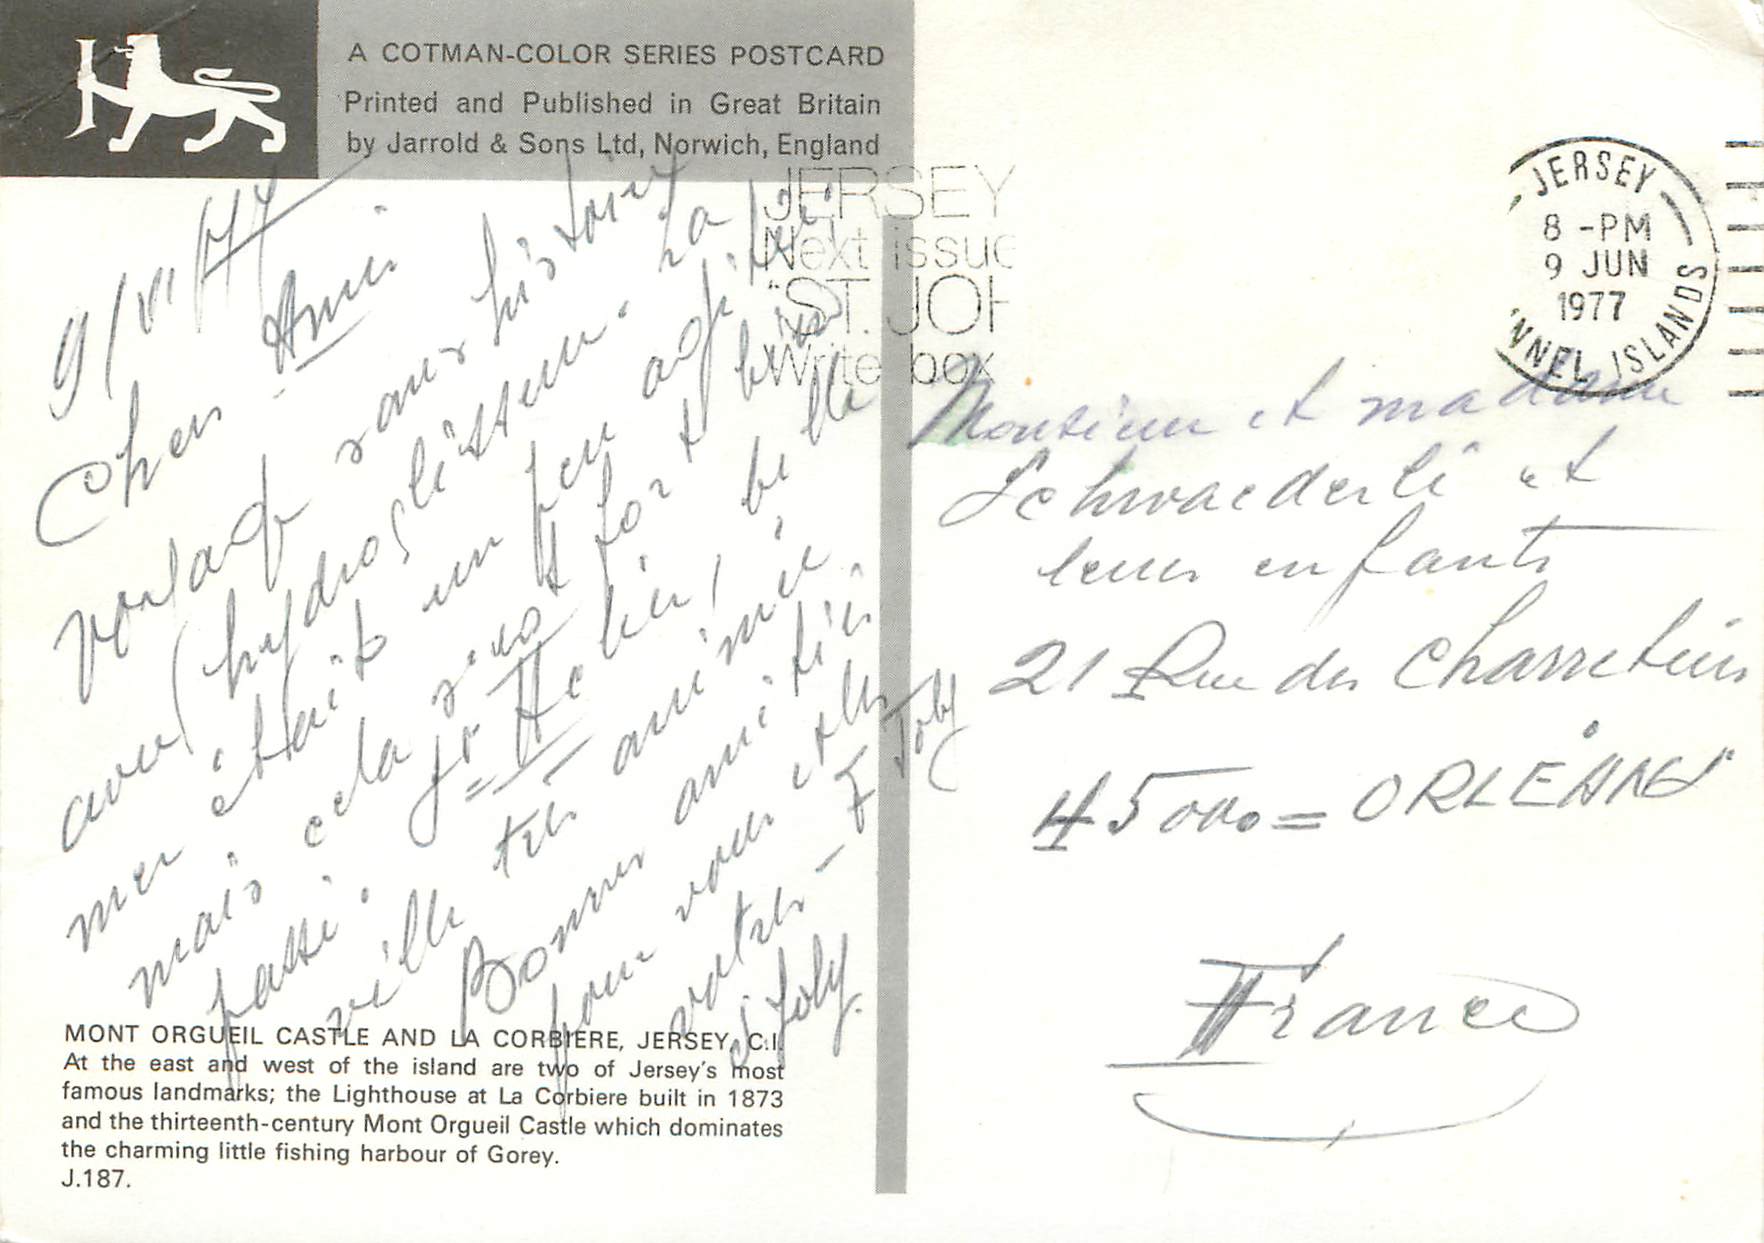 A COTMAN-COLOR SERIES POSTCARD
Printed and Published in Great Britain
by Jarrold & Sons Ltd, Norwich, England
9/VI/77
Chers Amis
voyage sans histoire
avec hydroglisseur. La
mer était un peu agitée
mais cela s'est fort bien
passé. St Hélier, belle
ville très animée.
Bonnes amitiés
pour vous et les
vôtres - F Joly
J Joly.
MONT ORGUEIL CASTLE AND LA CORBIERE, JERSEY, C.I.
At the east and west of the island are two of Jersey's most
famous landmarks; the Lighthouse at La Corbiere built in 1873
and the thirteenth-century Mont Orgueil Castle which dominates
the charming little fishing harbour of Gorey.
J.187.
JERSEY
Next issue
"ST. JOH
Write box
JERSEY
8 -PM
9 JUN
1977
NNEL ISLANDS
Monsieur et madame
Schwaederlé et
leurs enfants
21 Rue des Charretiers
45000 = ORLÉANS
France